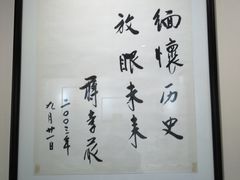 緬懷历史
放眼未来
蒋孝严
二〇〇三年
九月廿一日